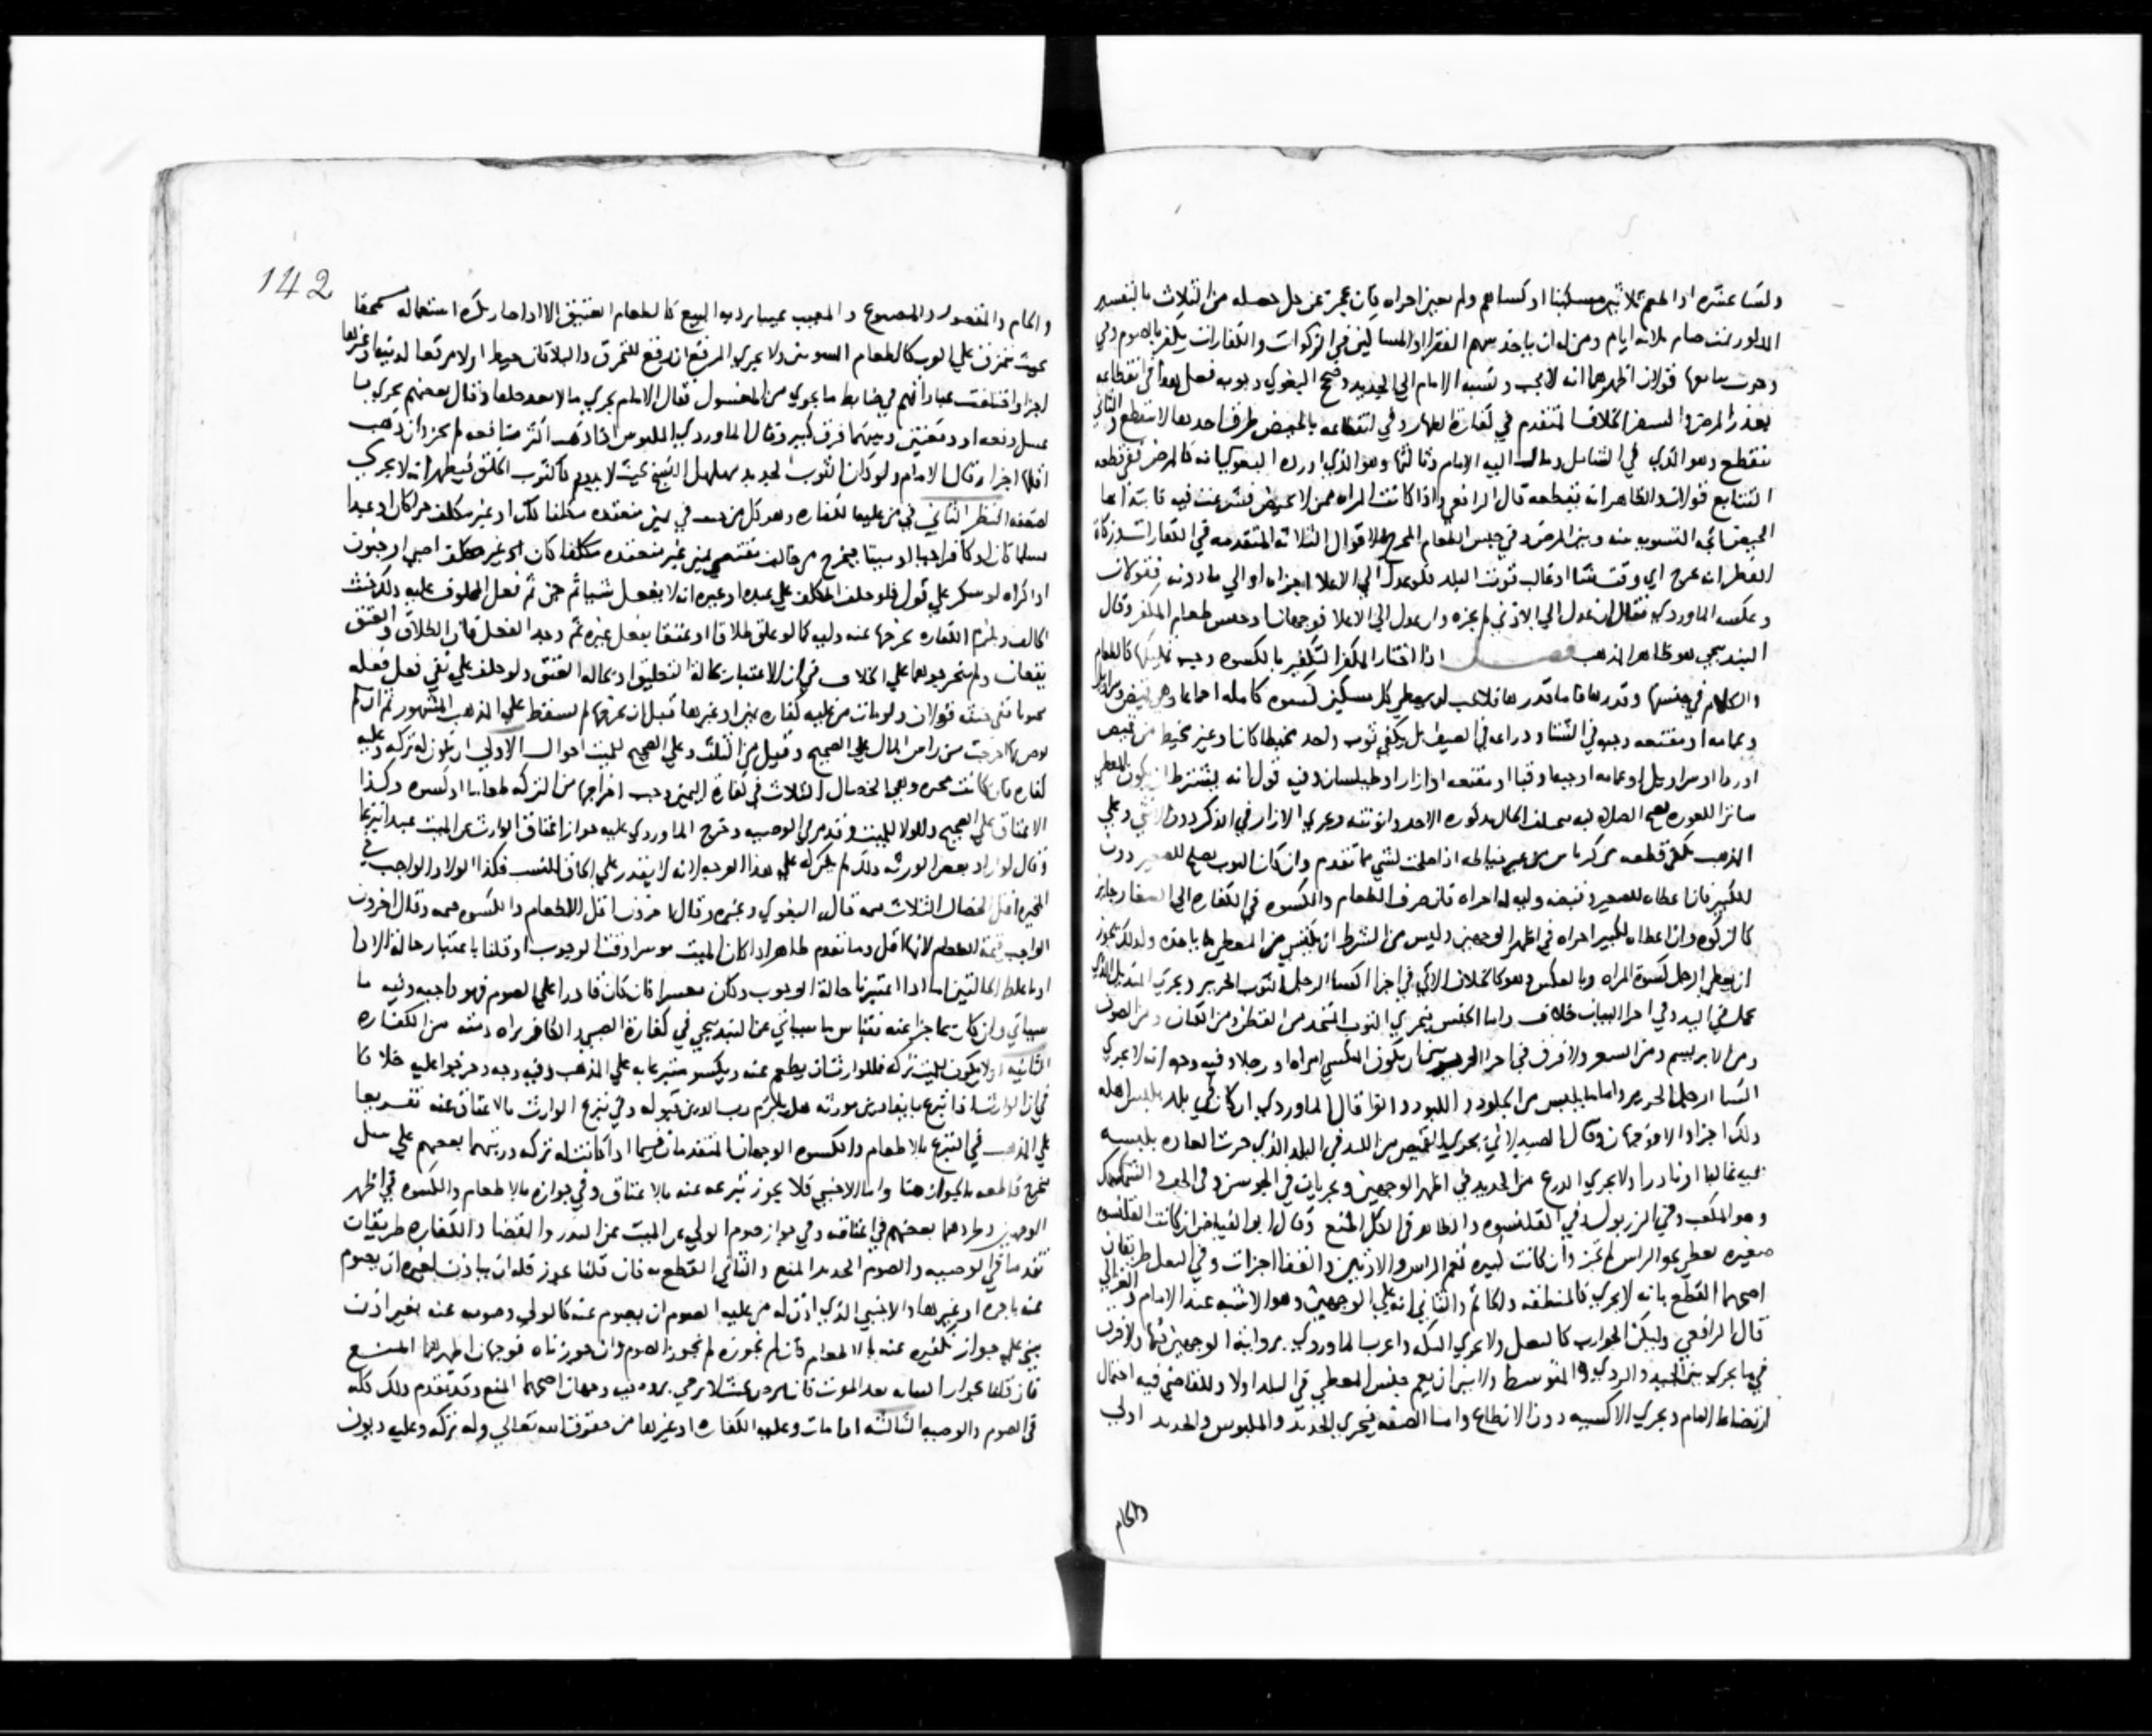 ولسا عشره او اطعم ثلاثين مسكينا او كساهم ولم يعين اجزاه فان عجز عن كل خصله من الثلاث بالتفسير
المذكور صام ثلاثه ايام ومن له ان ياخذ سهم الفقرا او المساكين في الزكوات والكفارات يكفر بالصوم وفي
وجوب تتابعها قولان اظهرهما انه لا يجب ونسبه الامام الى الجديد وصحح البغوي وجوبه فعلى هذا في انقطاعه
بعذر المرض والسفر الخلاف المتقدم في كفارة الظهار وفي انقطاعه بالحيض طرق احدها لا ينقطع والثاني
ينقطع وهو الذي في الشامل ومال اليه الامام وثالثها وهو الذي اورده البغوي انه كالمرض ففي قطعه
التتابع قولان والظاهر انه يقطعه قال الرافعي واذا كانت المراه ممن لا تحيض فشرعت فيه فابتداها
الحيض التسويه بينه وبين المرض وفي جنس الطعام المخرج الاقوال الثلاثه المتقدمه في الكفارات وزكاة
الفطر انه يخرج اي قوت شا او غالب قوت البلد فلو عدل الى الاعلا اجزاه او الى ما دونه فقولان
وعكسه الماوردي فقال ان عدل الى الادنى لم يجزه وان عدل الى الاعلا فوجهان وجنس طعام المكفر وقال
البندنيجي هو ظاهر المذهب فصل اذا اختار المكفر التكفير بالكسوه وجب تمليكها كالطعام
والكلام في جنسها وقدرها فاما قدرها فلا يجب ان يعطي كل مسكين كسوه كامله اجماعا وهي قميص وسراويل
وعمامه او مقنعه وجبه في الشتا ودراعه في الصيف بل يكفي ثوب واحد مخيطا كان او غير مخيط من قميص
او ردا او سراويل او عمامه او جبه او قبا او مقنعه او ازار او طيلسان وفيه قول انه يشترط ان يكون المعطي
ساترا للعوره يصح الصلاه فيه يختلف الحال بذكوره الاخذ وانوثته ويجزي الازار في الذكر دون الانثى وعلى
المذهب يكفي قطعه من كرباس من غير خياطه اذا صلحت لشي مما تقدم وان كان الثوب يصلح للصغير دون
للكبير فان اعطاه للصغير وقبضه وليه له اجزاه فان صرف الطعام والكسوه في الكفاره الى الصغار جايز
كالزكوه وان اعطاه للكبير اجزاه في اظهر الوجهين وليس من الشرط ان يكتسي من المعطي ما ياخذه ولذلك يجوز
ان يعطي الرجل كسوة المراه وبالعكس وهو كالخلاف الاتي في اجزا اكسا الرجل الثوب الحرير ويجزي المنديل الذي
يحمل في اليد وفي اجزا التبان خلاف واما الجنس فيجزي الثوب المتخذ من القطن ومن الكتان ومن الصوف
ومن الابريسم ومن الشعر ولا فرق في اجزا الحرير بين ان يكون المكتسي امراه او رجلا وفيه وجه انه لا يجزي
اكسا الرجل الحرير واما ما يلبس من الجلود واللبود والفرا قال الماوردي ان كان في بلد يلبس اهله
ذلك اجزا والا فوجهان وقال الصيدلاني يجزي القميص من اللبد في البلد الذي جرت العاده بلبسه
فيه غالبا او نادرا ولا يجزي الدرع من الحديد في اظهر الوجهين ويجريان في الجوشن وفي الخف والشمشك
وهو المكعب وفي الزربول وفي القلنسوه والظاهر في الكل المنع وقال ابو الفياض ان كانت القلنسوه
صغيره تغطي نحو الراس لم تجز وان كانت كبيره تعم الراس والاذنين والقفا اجزات وفي النعل طريقان
اصحهما القطع بانه لا يجزي كالمنطقه والخاتم والثاني انه على الوجهين وهو الاشبه عند الامام والغزالي
قال الرافعي وليكن الجوارب كالنعل ولا يجزي التكه واغرب الماوردي برواية الوجهين فيها ولا فرق
فيما يجزي بين الجيد والردي والمتوسط والاشبه ان يعم جنس المعطي في البلد اولا وللقاضي فيه احتمال
ارتضاه الامام ويجزي الاكسيه دون الانطاع واما الصفه فيجزي الجديد والملبوس والجديد اولى
والخام
142
والخام والمقصور والمصبوغ والمعيب عيبا يرد به البيع كالطعام العتيق الا اذا صار بكثرة استعماله منمحقا
بحيث يتمزق على القرب كالطعام المسوس ولا يجزي المرقع ان رقع للتخرق والبلا فان خيط اولا مرقعا لزينة او غيرها
اجزا واختلفت عباراتهم في ضابط ما يجزي من المغسول فقال الامام يجزي ما لا يعد خلقا وقال بعضهم يجزي ما
غسل دفعه او دفعتين وبينهما فرق كبير وقال الماوردي الملبوس اذا ذهب اكثر منافعه لم يجز وان ذهب
اقلها اجزا وقال الامام ولو كان الثوب الجديد مهلهل النسج بحيث لا يدوم كالثوب الخلق فيظهر انه لا يجزي
لضعفه النظر الثاني في من عليه الكفاره وهو كل من حنث في يمين منعقده مكلفا كان او غير مكلف حرا كان او عبدا
مسلما كان او كافرا حيا او ميتا فيخرج من حالف يمين غير منعقده مكلفا كان او غير مكلف لصبي او جنون
او اكراه او سكر على قول فلو حلف المكلف على عبده او غيره ان لا يفعل شيا ثم جن ثم فعل المحلوف عليه ذلك حنث
الحالف ويلزم الكفاره يخرجها عنه وليه كما لو علق طلاقا او عتقا بفعل غيره ثم وجد الفعل فان الطلاق والعتق
يقعان ولم يخرجوهما على الخلاف في ان الاعتبار بحالة التعليق او بحالة العتق ولو حلف على نفي فعل ففعله
مجنونا ففي حنثه قولان ولو مات من عليه كفاره يمين او غيرها قبل ان يخرجها لم يسقط على المذهب المشهور ثم ان لم
يوص بها اخرجت من راس المال على الصحيح وقيل من الثلث وعلى الصحيح للميت احوال الاولى ان يكون له تركه وعليه
كفاره فان كانت مخيره وهي الخصال الثلاث في كفارة اليمين وجب اخراجها من التركه طعاما او كسوه وكذا
الاعتاق على الصحيح والولا للميت وقد مر في الوصيه وخرج الماوردي عليه جواز اعتاق الوارث عن الميت عبدا تبرعا
وقال لو اراد بعض الورثه ذلك لم يكن له على هذا الوجه لانه لا يقدر على الحاق النسب فكذا الولا والواجب في
المخيره اقل الخصال الثلاث قيمه قال البغوي وغيره وقال اخرون اقل الاطعام والكسوه قيمه وقال اخرون
الواجب قيمة الطعام لانها اقل وما تقدم ظاهر اذا كان الميت موسرا وقت الوجوب او قلنا باعتبار حالة الادا
او باغلظ الحالتين اما اذا اعتبرنا حالة الوجوب وكان معسرا فان كان قادرا على الصوم فهو واجبه وفيه ما
سياتي وان كان عاجزا عنه فقياس ما سياتي عن البندنيجي في كفارة الصبي والكافر براه ذمته من الكفاره
الثانيه ان لا يكون للميت تركه فللوارث ان يطعم عنه ويكسو متبرعا به على المذهب وفيه وجه وخرجوا عليه خلافا
في ان الوارث اذا تبرع بايفا دين مورثه هل يلزم رب الدين قبوله وفي تبرع الوارث بالاعتاق عنه تفريعا
على المذهب في التبرع بالاطعام والكسوه الوجهان المتقدمان فيما اذا كانت له تركه ورتبهما بعضهم على تلك
فخرج قاطعه بالجواز هنا واما الاجنبي فلا يجوز تبرعه عنه بالاعتاق وفي جوازه بالاطعام والكسوه في اظهر
الوجهين وطردهما بعضهم في اعتاقه وفي جواز صوم الولي عن الميت عن النذر والقضا والكفاره طريقان
تقدما في الوصيه والصوم الجديد المنع والثاني القطع به فان قلنا يجوز فله ان ياذن لغيره ان يصوم
عنه باجره او بغيرها والاجنبي الذي اذن له من عليه الصوم ان يصوم عنه كالولي وصومه عنه بغير اذن
يبنى على جواز تكفيره عنه بالاطعام فان لم نجوزه لم نجوز الصوم وان جوزناه فوجهان اظهرهما المنع
فان قلنا بجواز النيابه بعد الموت فان مرض بحيث لا يرجي برؤه ففيه وجهان اصحهما المنع وقد تقدم ذلك كله
في الصوم والوصيه الثالثه اذا مات وعليه الكفاره او غيرها من حقوق الله تعالى وله تركه وعليه ديون